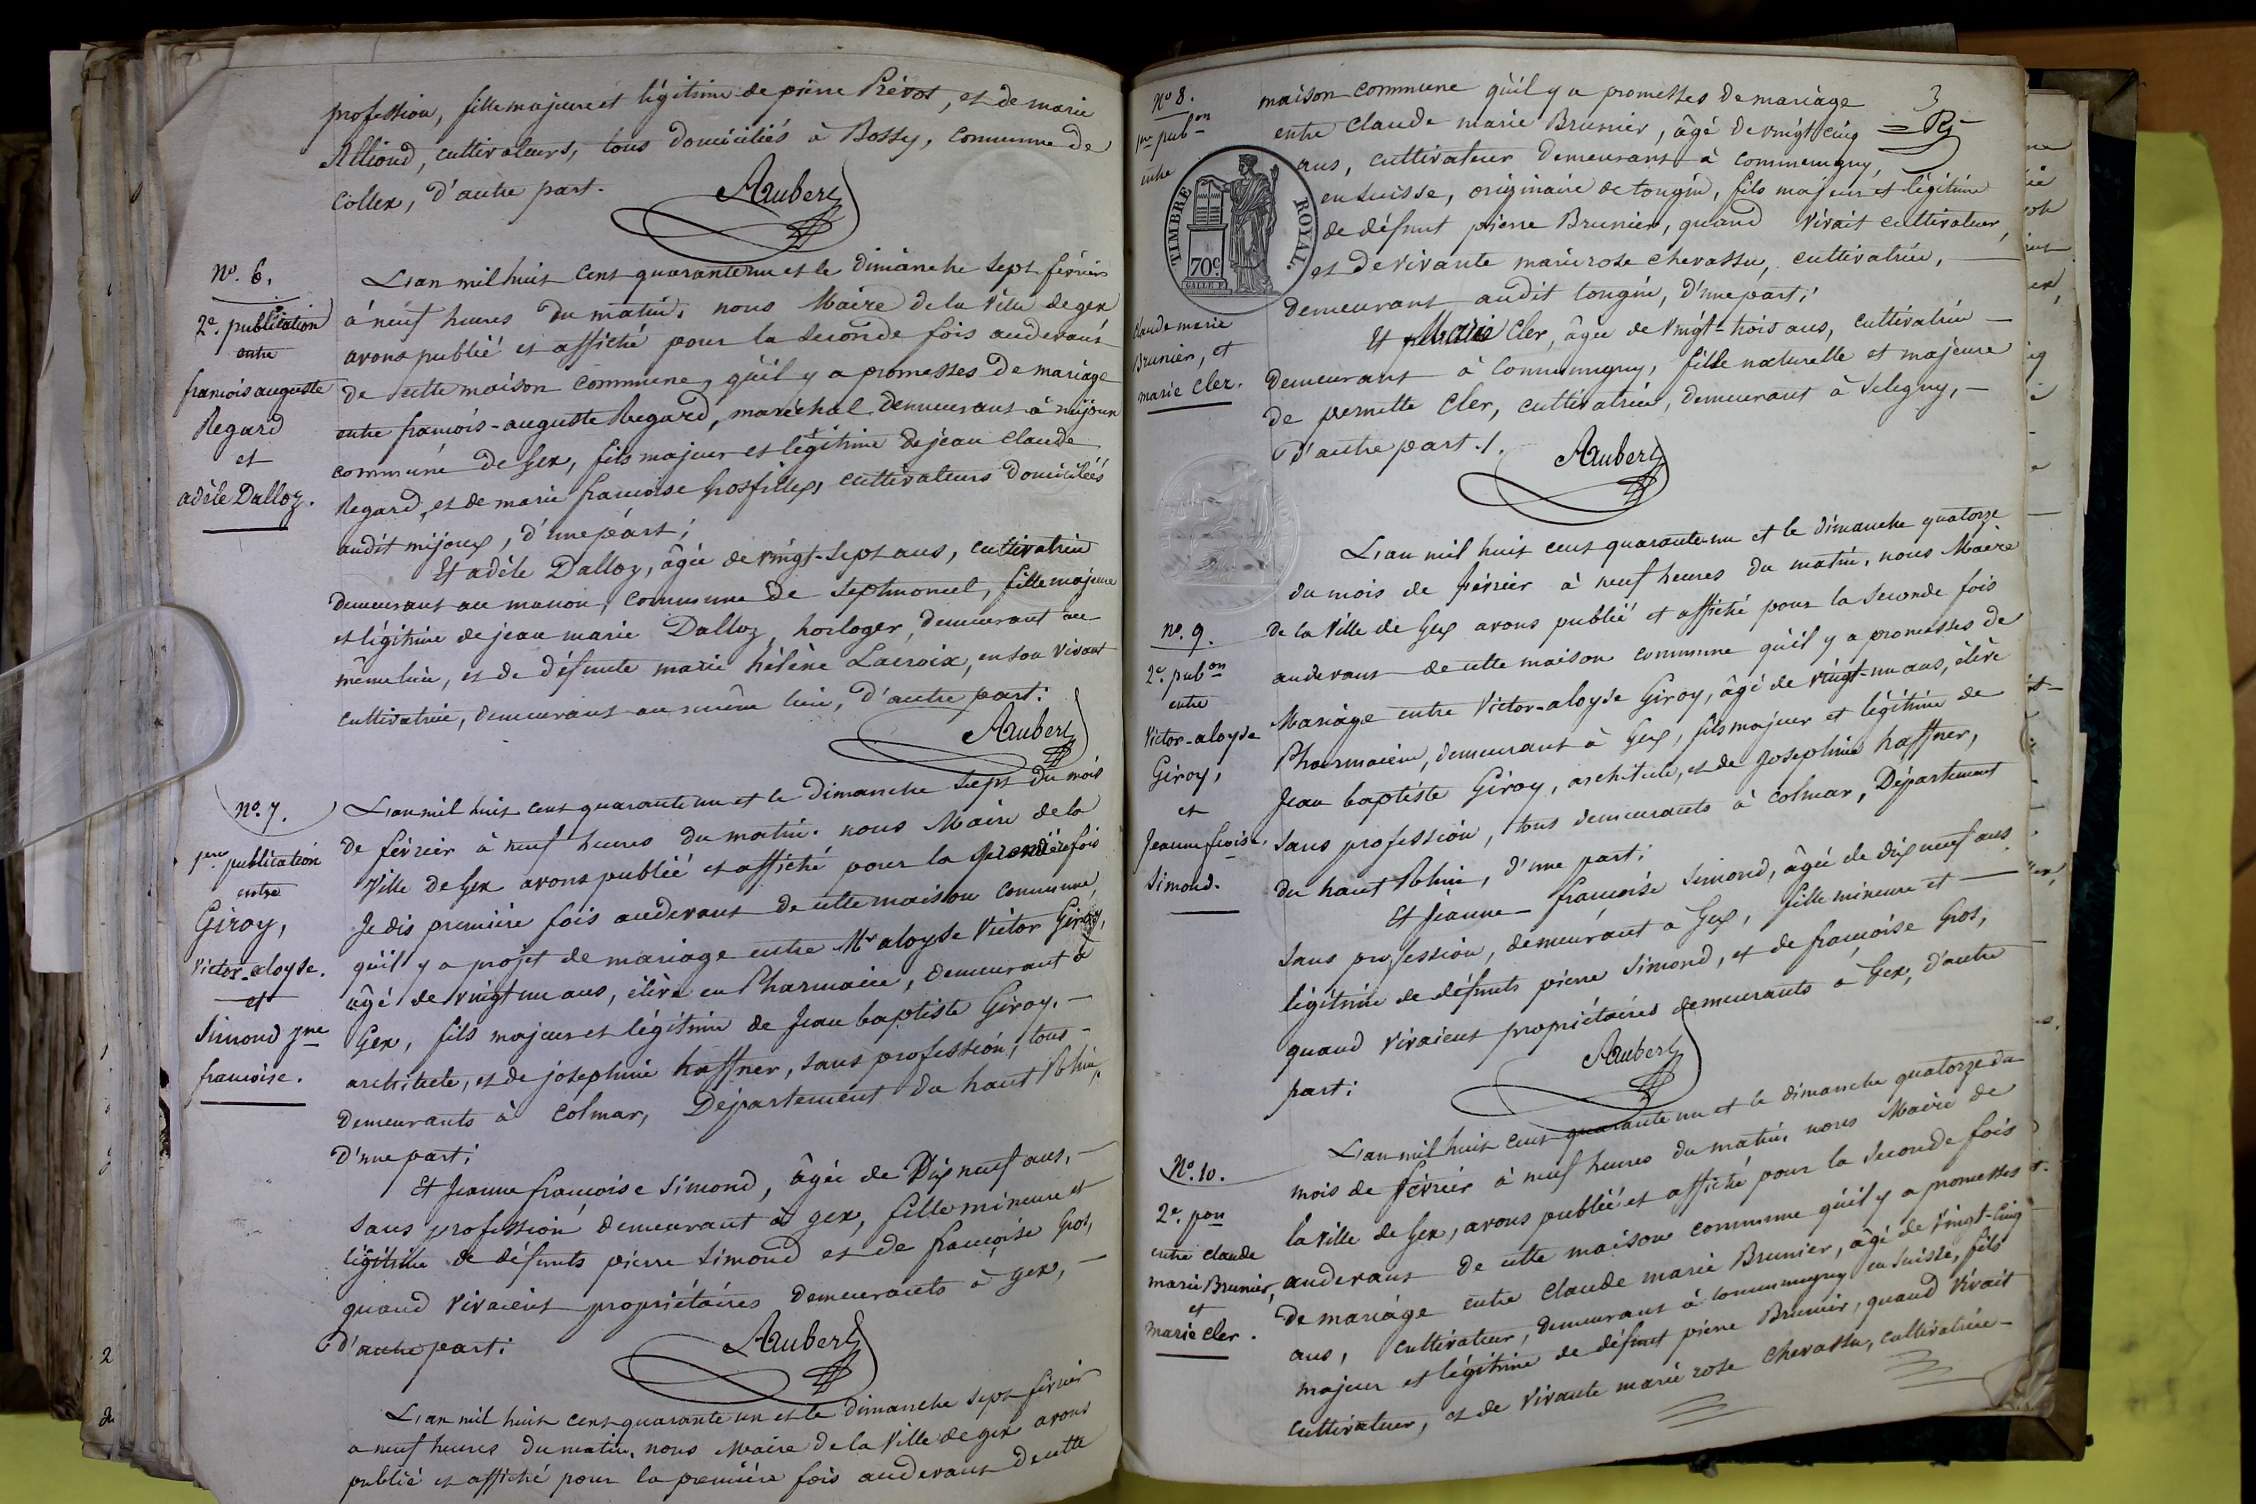 profession, fille majeure et légitime de pierre Prévot, et de marie
Alliond, cultivateurs, tous domiciliés à Bossy, commune de
Collex, d'autre part.
Aubert
No. 6.
2e. publication
entre
francois auguste
Regard
et
adèle Dalloz.
L'an mil huit cent quarante un et le dimanche sept février
à neuf heures du matin, nous Maire de la Ville de gex
avons publié et affiché pour la seconde fois audevant
de cette maison commune, qu'il y a promesses de mariage
entre francois-auguste Regard, maréchal demeurant à mijoux
commune de Gex, fils majeur et légitime de jean claude
Regard, et de marie francoise Grosfillex, cultivateurs domiciliés
audit mijoux, d'une part;
Et adèle Dalloz, âgée de vingt-sept ans, cultivatrice
demeurant au manon, commune de Septmoncel, fille majeure
et légitime de jean marie Dalloz, horloger, demeurant au
même lieu, et de défunte marie hélène Lacroix, en son vivant
cultivatrice, demeurant au même lieu, d'autre part.
Aubert
No. 7.
1ere publication
entre
Giroy,
Victor-aloyse.
et
Simond Jne
francoise.
L'an mil huit cent quarante un et le dimanche sept du mois
de février à neuf heures du matin. nous Maire de la
Ville de Gex avons publié et affiché pour la fois
Je dis première fois audevant de cette maison commune,
qu'il y a projet de mariage entre Mr aloyse Victor Giroy,
âgé de vingt un ans, élève en Pharmacie, demeurant à
Gex, fils majeur et légitime de Jean baptiste Giroy. —
architecte, et de josephine haffner, sans profession, tous —
demeurants à Colmar, Département du haut Rhin,
d'une part;
Et Jeanne francoise Simond, âgée de Dix neuf ans, —
sans profession demeurant à gex, fille mineure et
légitime de défunts pierre Simond et de francoise Gros,
quand vivaient propriétaires demeurants à gex, —
d'autre part;
Aubert
L'an mil huit cent quarante un et le dimanche sept février
a neuf heures du matin, nous Maire de la Ville de gex avons
publié et affiché pour la première fois audevant de cette
3
No 8.
1re pubon
entre
TIMBRE ROYAL.
70c
claude marie
Brunier, et
marie Cler.
maison commune qu'il y a promesses de mariage
entre Claude marie Brunier, âgé de vingt cinq
ans, cultivateur demeurant à Commemgny,
en suisse, originaire de tougin, fils majeur et légitime
de défunt pierre Brunier, quand vivait cultivateur,
et de vivante marie rose chevassu, cultivatrice, —
demeurant audit tougin, d'une part;
Et Marie Cler, âgée de vingt-trois ans, cultivatrice —
demeurant à Commemgny, fille naturelle et majeure
de pernette Cler, cultivatrice, demeurant à Seligny, —
d'autre part ./.
Aubert
no. 9.
2e. pubon
entre
Victor-aloyse
Giroy,
et
Jeanne froise,
Simond.
L'an mil huit cent quarante-un et le dimanche quatorze
du mois de février à neuf heures du matin, nous Maire
de la Ville de Gex avons publié et affiché pour la seconde fois
audevant de cette maison commune qu'il y a promesses de
Mariage entre Victor-aloyse Giroy, âgé de vingt-un ans, élève
Pharmacien, demeurant à Gex, fils majeur et légitime de
Jean baptiste Giroy, architecte, et de Josephine haffner,
sans profession, tous demeurants à Colmar, Département
du haut Rhin, d'une part;
Et Jeanne-francoise Simond, âgée de dix neuf ans
sans profession, demeurant à Gex, fille mineure et —
légitime de défunts pierre Simond, et de francoise Gros,
quand vivaient propriétaires demeurants à Gex, d'autre
part;
Aubert
No. 10.
2e. pon
entre claude
marie Brunier,
et
marie Cler.
L'an mil huit cent quarante un et le dimanche quatorze du
mois de février à neuf heures du matin, nous Maire de
la Ville de Gex, avons publié et affiché pour la seconde fois
audevant de cette maison commune qu'il y a promesses
de mariage entre Claude marie Brunier, âgé de vingt-cinq
ans, cultivateur, demeurant à Commemgny en suisse, fils
majeur et légitime de défunt pierre Brunier, quand vivait
cultivateur, et de vivante marie rose chevassu, cultivatrice —